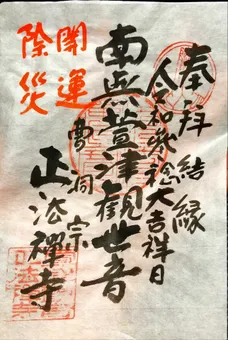 奉拝 結縁
令和弐稔大吉祥日
南無萱津観世音
曹洞宗
正法禪寺
開運
除災